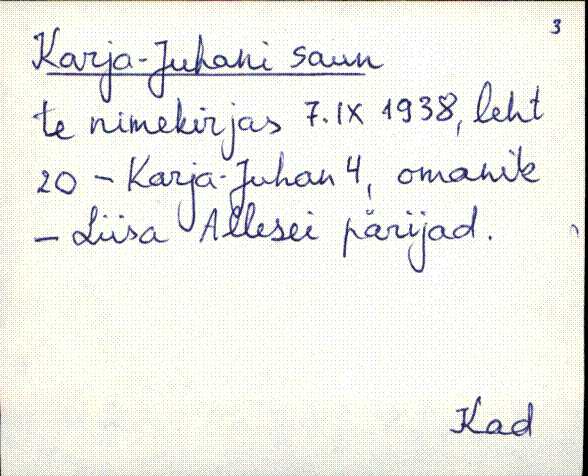 3
Karja-Juhani saun
te nimekirjas 7.IX 1938, leht
20 – Karja-Juhan 4, omanik
– Liisa Allesei pärijad.
Kad